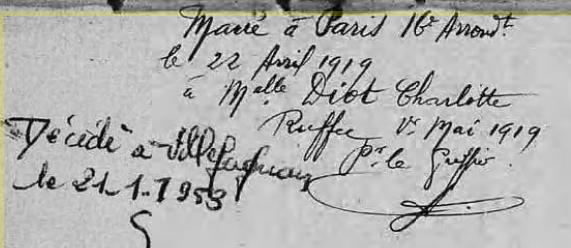 Marié à Paris 16e Arrondt
le 22 Avril 1919
à Melle Diot Charlotte
Ruffec 1er Mai 1919
Pr le Greffier.
Décédé à Villefagnan
le 21-1-1953